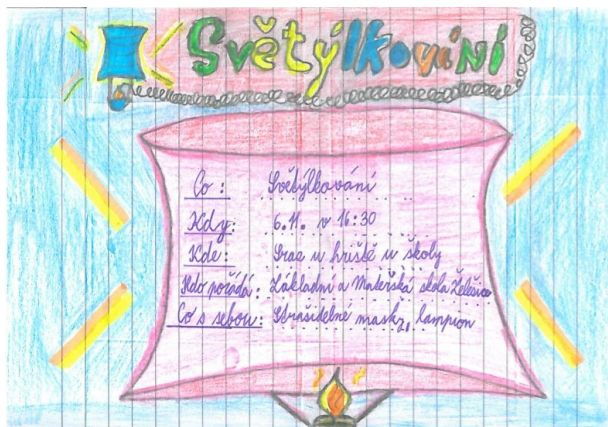 Světýlkování
Co: Světýlkování
Kdy: 6.11. v 16:30
Kde: Sraz u hřiště u školy
Kdo pořádá: Základní a Mateřská škola Želešice
Co s sebou: Strašidelné masky, lampion